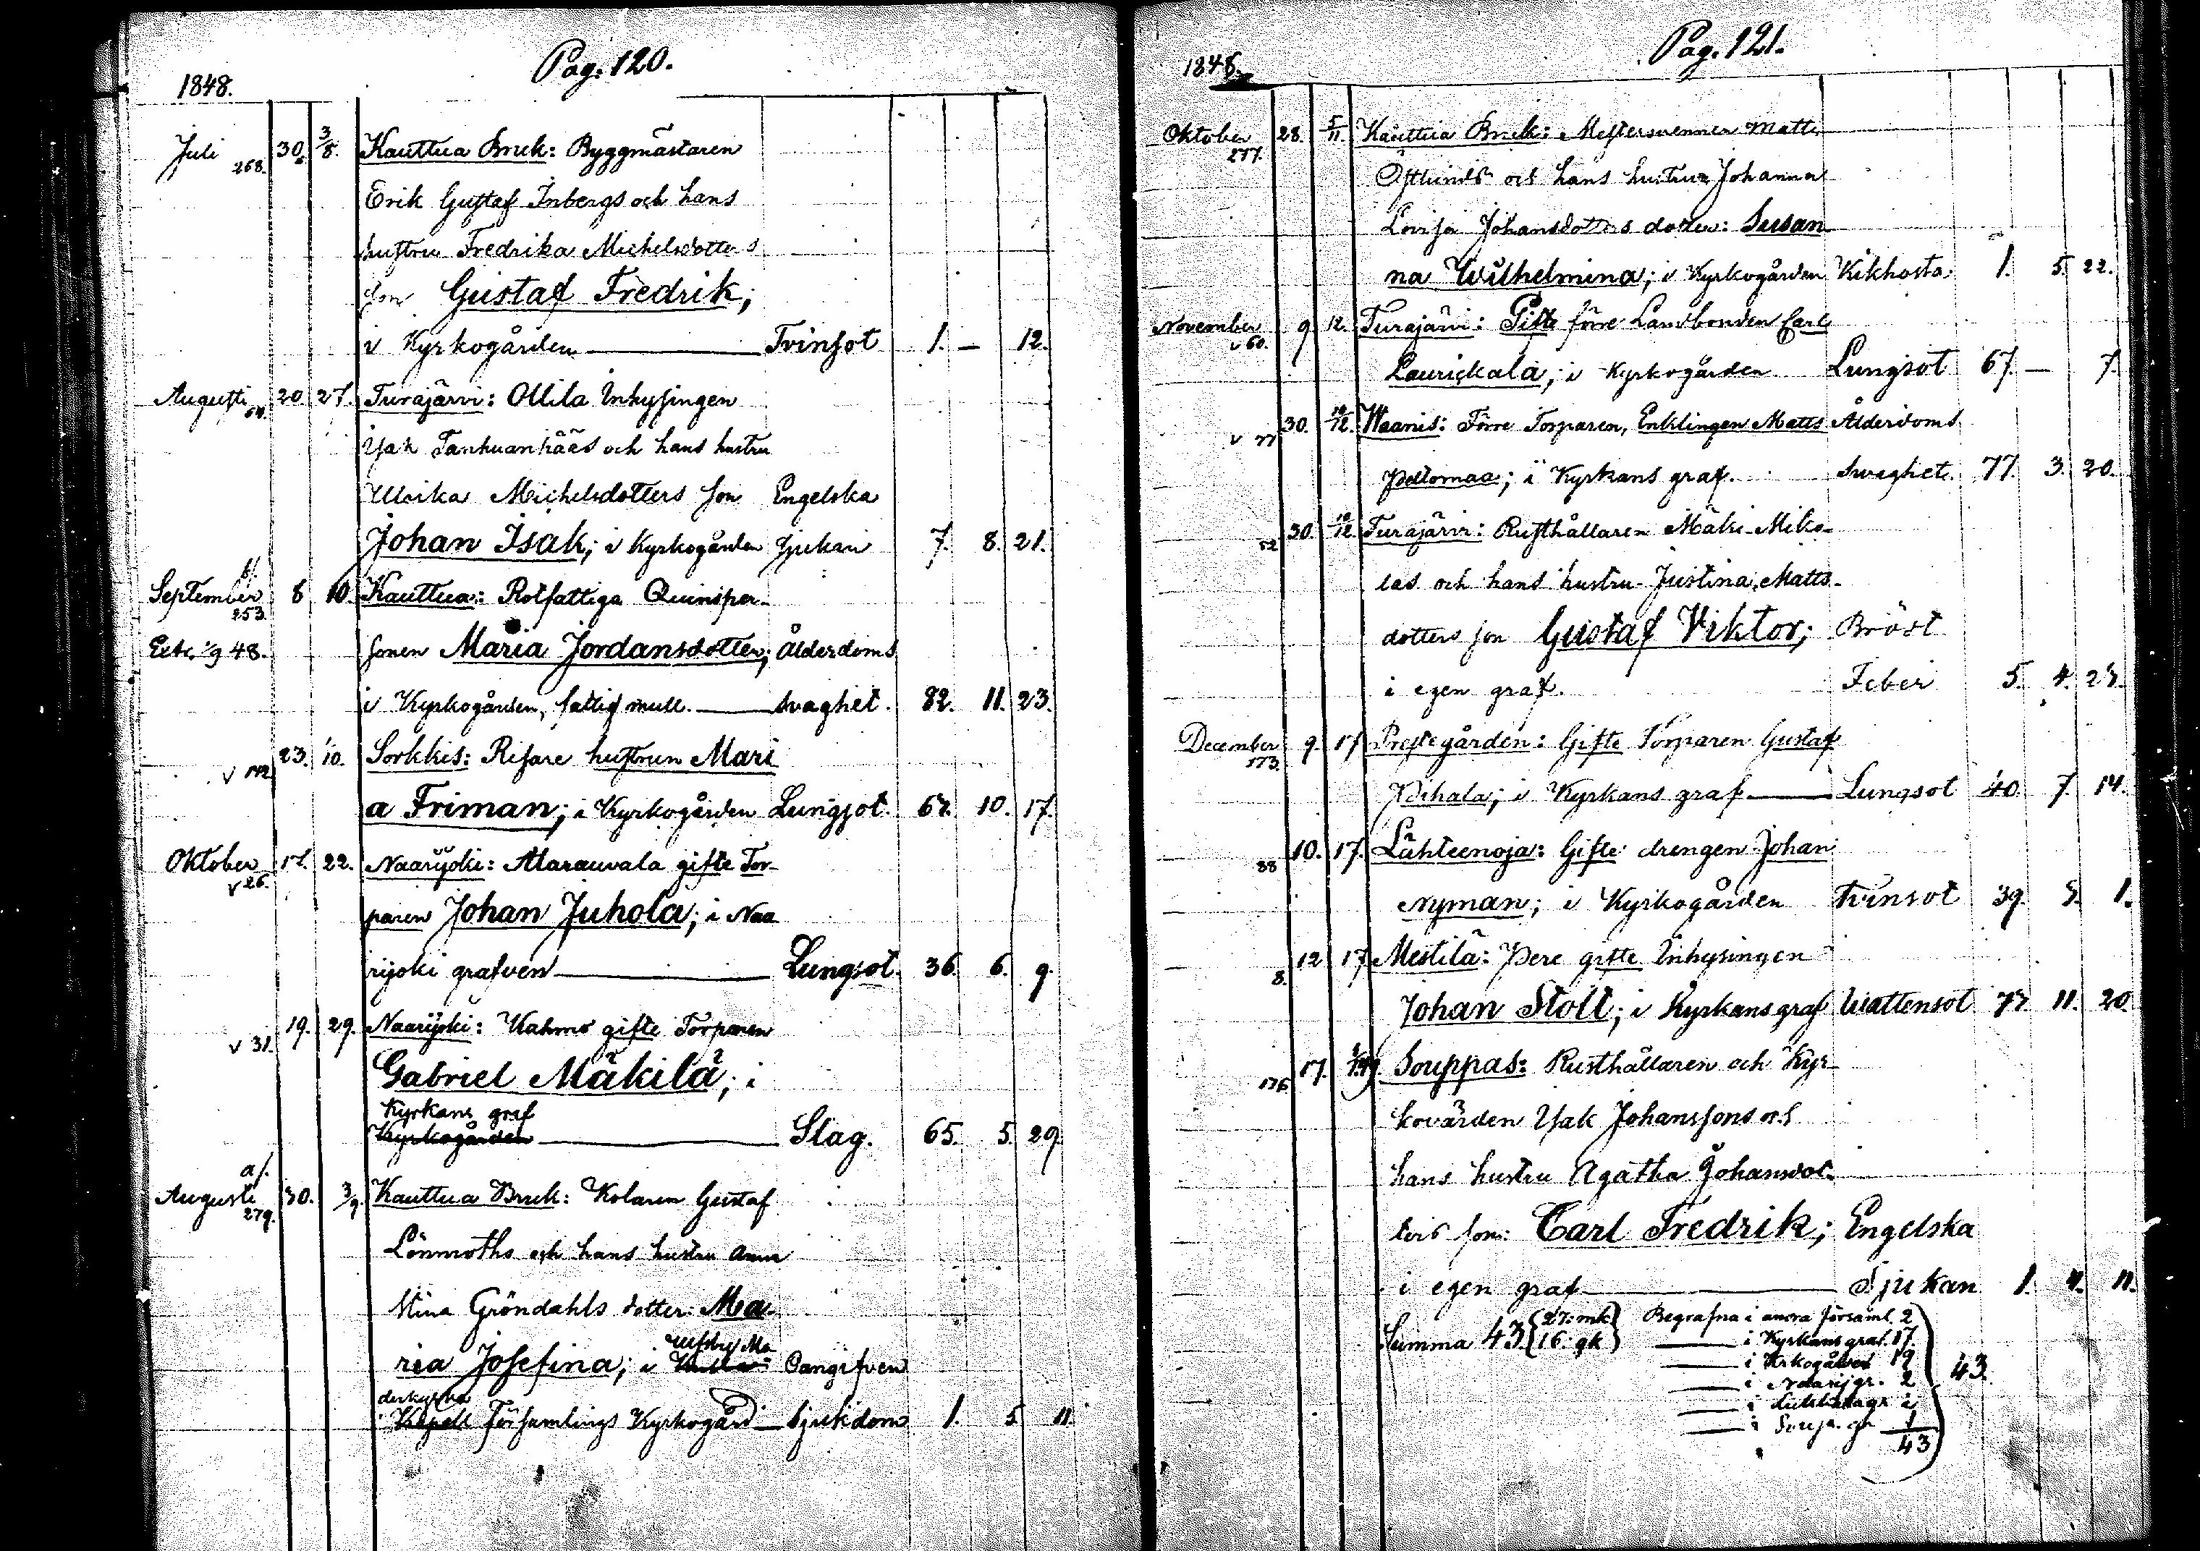 Pag. 120.
1848.
Juli 268. 30. 3/8. Kauttua Bruk: Byggmästaren
Erik Gustaf Inbergs och hans
hustru Fredrika Michelsdotters
son Gustaf Fredrik;
i Kyrkogården Tvinsot 1. — 12.
Augusti 20 27. Turajärvi: Ollila Inhysingen
Isak Tanhuanpääs och hans hustru
Ulrika Michelsdotters son Engelska
Johan Isak; i Kyrkogården Sjukan 7. 8. 21.
September 253. 6 10. Kauttua: Rotfattiga Quinsper-
48. sonen Maria Jordansdotter; Ålderdoms
i Kyrkogården, fattig mull. svaghet. 82. 11. 23.
v 112 23. 10. Sorkkis: Risare hustrun Mari
a Friman; i Kyrkogården Lungsot. 67. 10. 17.
Oktober v 26. 17. 22. Naarijoki: gifte Tor-
paren Johan Juhola; i Naa
rijoki grafven Lungsot. 36. 6. 9.
v 31. 19. 29. Naarijoki: Uahmo gifte Torparen
Gabriel Mäkilä; i
Kyrkans graf
Kyrkogården Slag. 65. 5. 29
af.
Augusti 279. 30. 3/9. Kauttua Bruk: Kolaren Gustaf
Lönnroths och hans hustru Anna
Stina Gröndahls dotter: Ma-
ria Josefina; i Oangifven
Kapell Församlings Kyrkogård sjukdom 1. 5. 11.
Pag. 121.
1848.
Oktober 277. 28. 5/11. Kauttua Bruk: Mestersvennen Matts
Östlunds och hans hustru Johanna
Lovisa Johansdotters dotter: Susan
na Wilhelmina; i Kyrkogården Kikhosta 1. 5. 22.
November v 60. 9 12. Turajärvi: Gifte förre Landbonden Carl
Laurickala; i Kyrkogården Lungsot 67. — 7.
v 77 30. 10/12. Waanis: Förre Torparen, Enklingen Matts Ålderdoms
Peltomaa; i Kyrkans graf. Svaghet. 77. 3. 20.
52 30. 10/12 Turajärvi: Rusthållaren Mäki-Mikos-
las och hans hustru Justina Matts-
dotters son Gustaf Viktor; Bröst
i egen graf. Feber 5. 4. 25.
December 173. 9 17 Prestegården: Gifte Torparen Gustaf
Pihala; i Kyrkans graf Lungsot 40. 7. 14.
88 10. 17. Lähteenoja: Gifte drengen Johan
Nyman; i Kyrkogården Tvinsot 39. 5. 1.
8. 12 17 Mestilä: Pere gifte Inhysingen
Johan Stolt; i Kyrkans graf Wattensot 77. 11. 20.
176 17. Souppas: Rusthållaren och Kyr-
kovärden Isak Johanssons och
hans hustru Agatha Johansdot-
ters son: Carl Fredrik; Engelska
i egen graf Sjukan 1. 4. 11.
Summa 43 {27: mk 16: qk} Begrafna i andra församl. 2
i Kyrkans graf. 17
i Kyrkogården 19
i Naarij gr. 2 43.
43